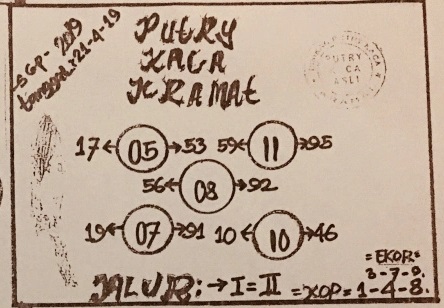 SGP-2019
tanggal:21-4-19
PUTRY
KACA
KRAMAT
PUTRY
CA
ASLI
17←05→53 59←11→95
56←08→92
19←07→91 10←10→46
=EKOR=
3-7-9.
JALUR:→I=II =KOP=1-4-8.